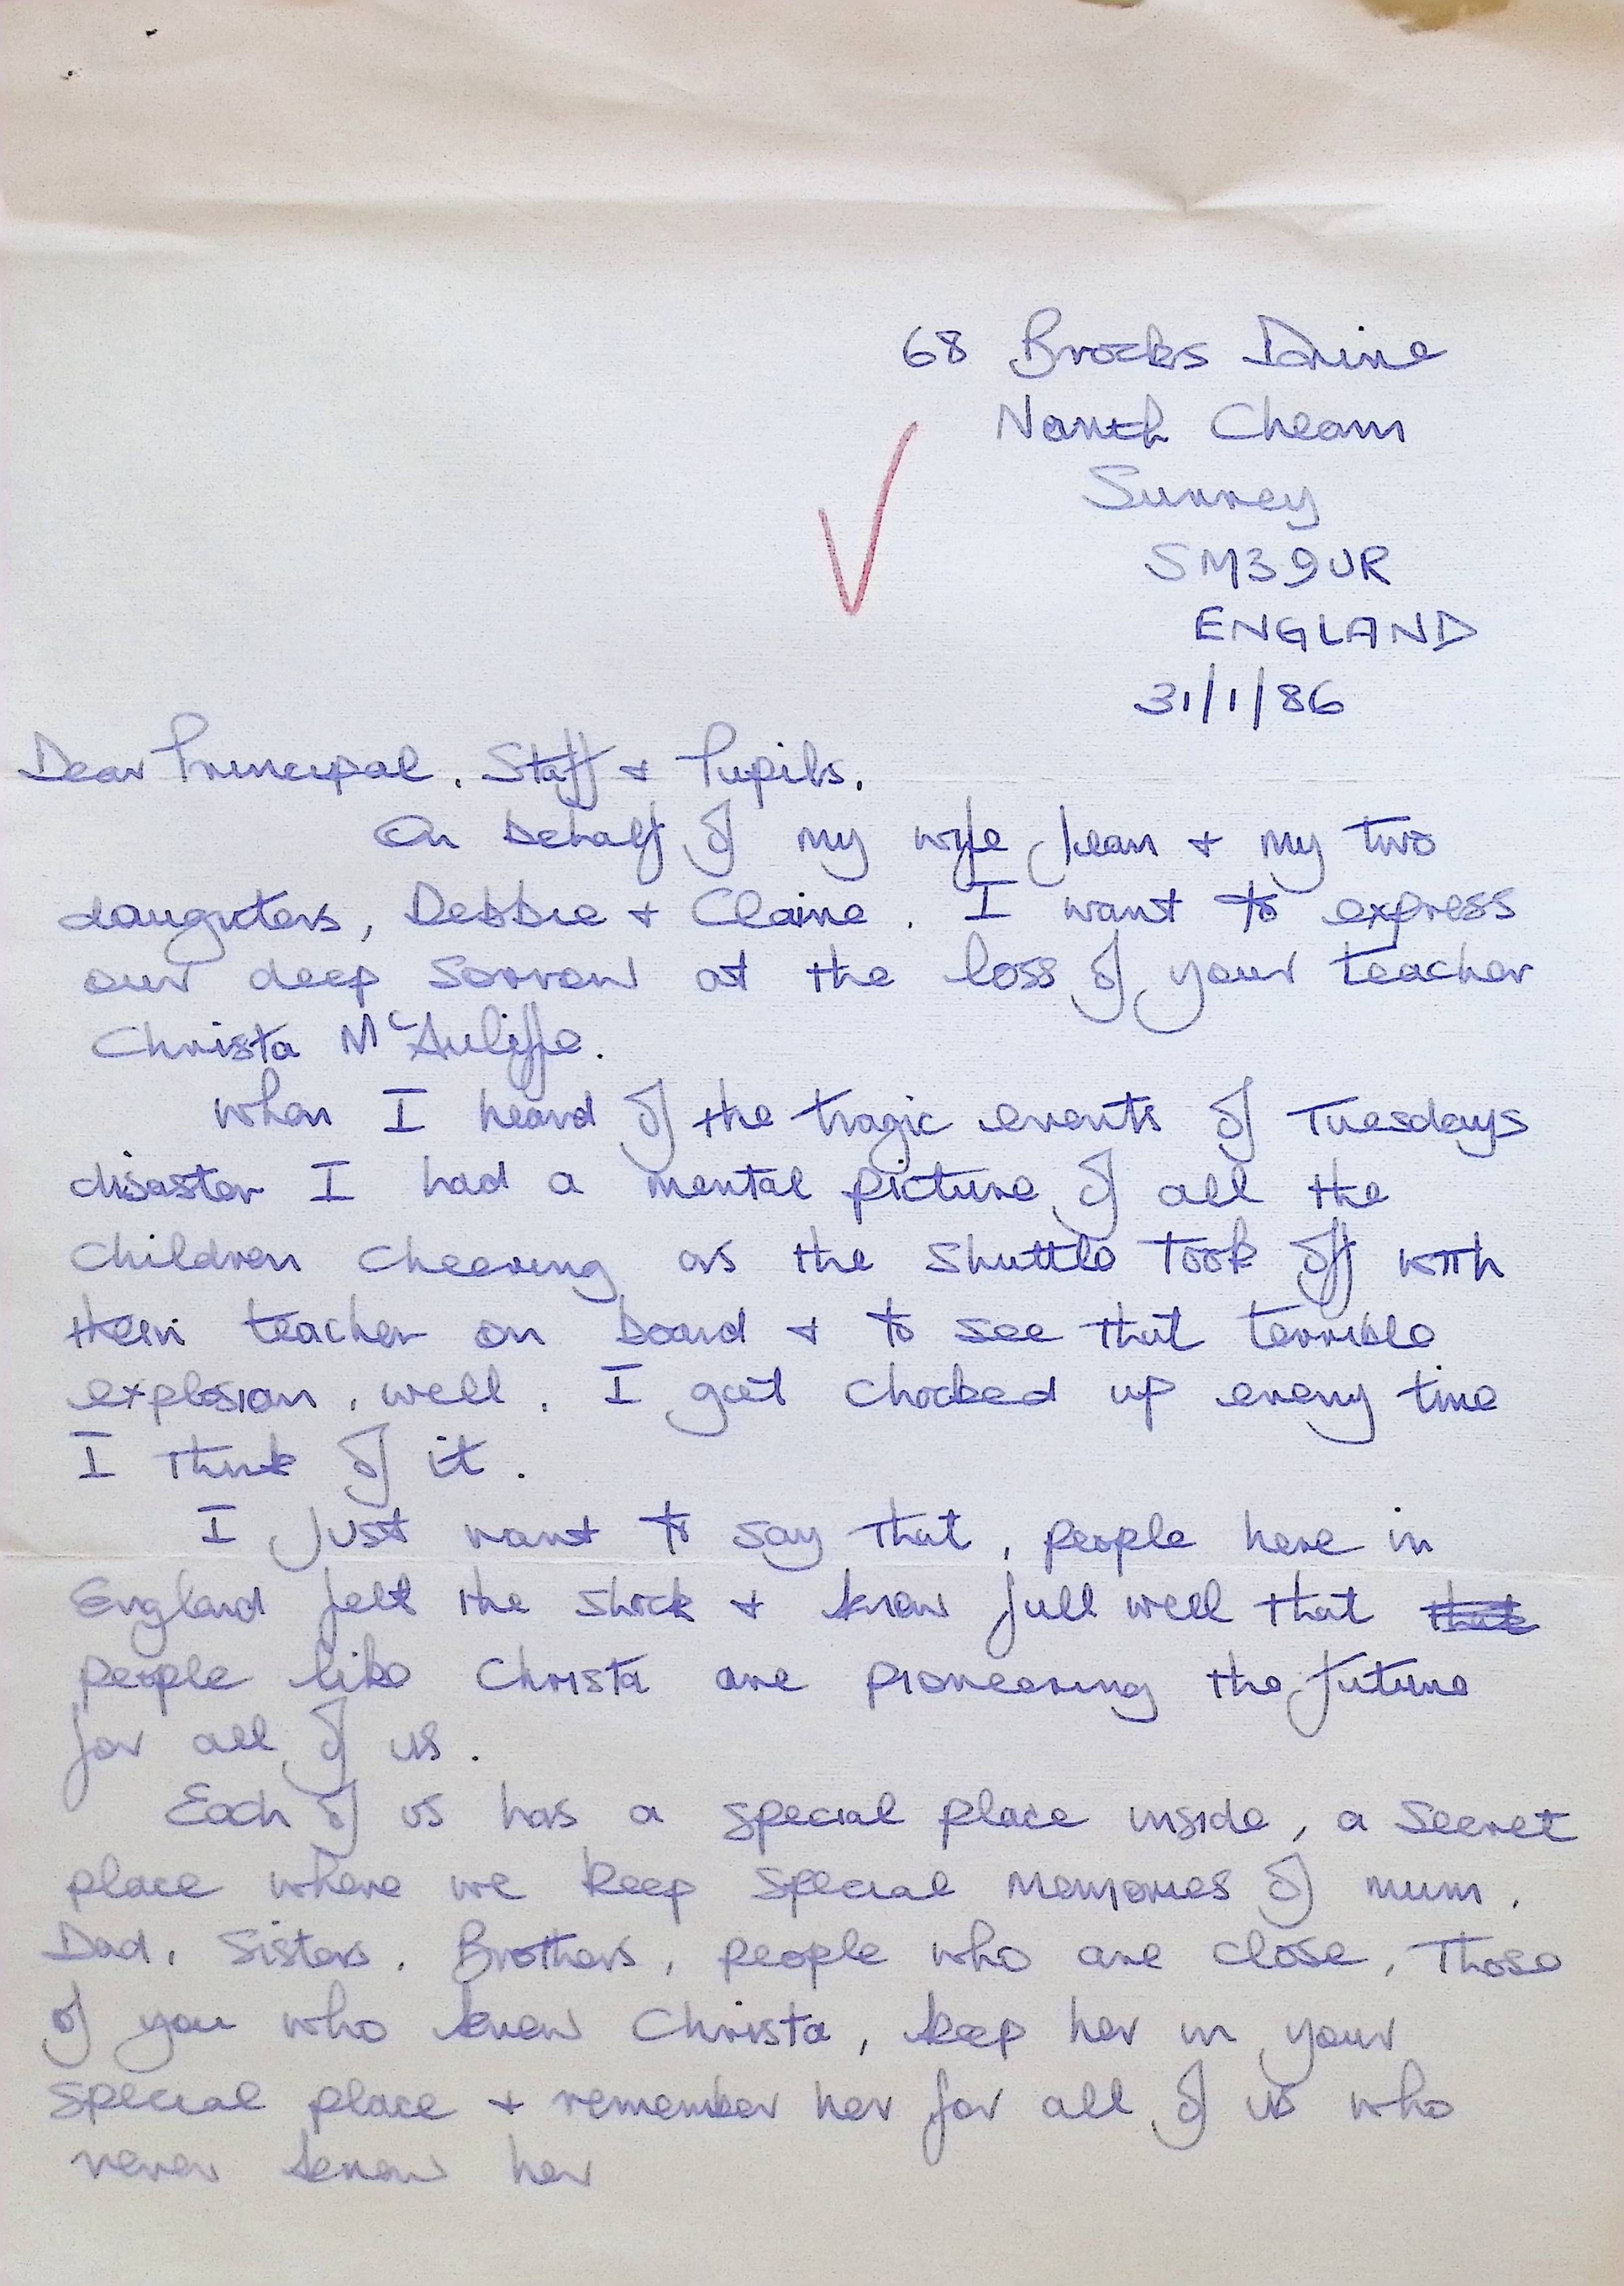 68 Brocks Drive
North Cheam
Surrey
SM3 9UR
ENGLAND
31/1/86
Dear Principal, Staff & Pupils.
On behalf of my wife Jean & my two
daughters, Debbie & Claire. I want to express
our deep sorrow at the loss of your teacher
Christa McAuliffe.
When I heard of the tragic events of Tuesdays
disaster I had a mental picture of all the
children cheering as the shuttle took off with
their teacher on board & to see that terrible
explosion, well, I get chocked up every time
I think of it.
I just want to say that, people here in
England felt the shock & know full well that
people like Christa are pioneering the future
for all of us.
Each of us has a special place inside, a secret
place where we keep special memories of mum,
Dad, Sisters, Brothers, people who are close, Those
of you who knew Christa, keep her in your
special place & remember her for all of us who
never knew her